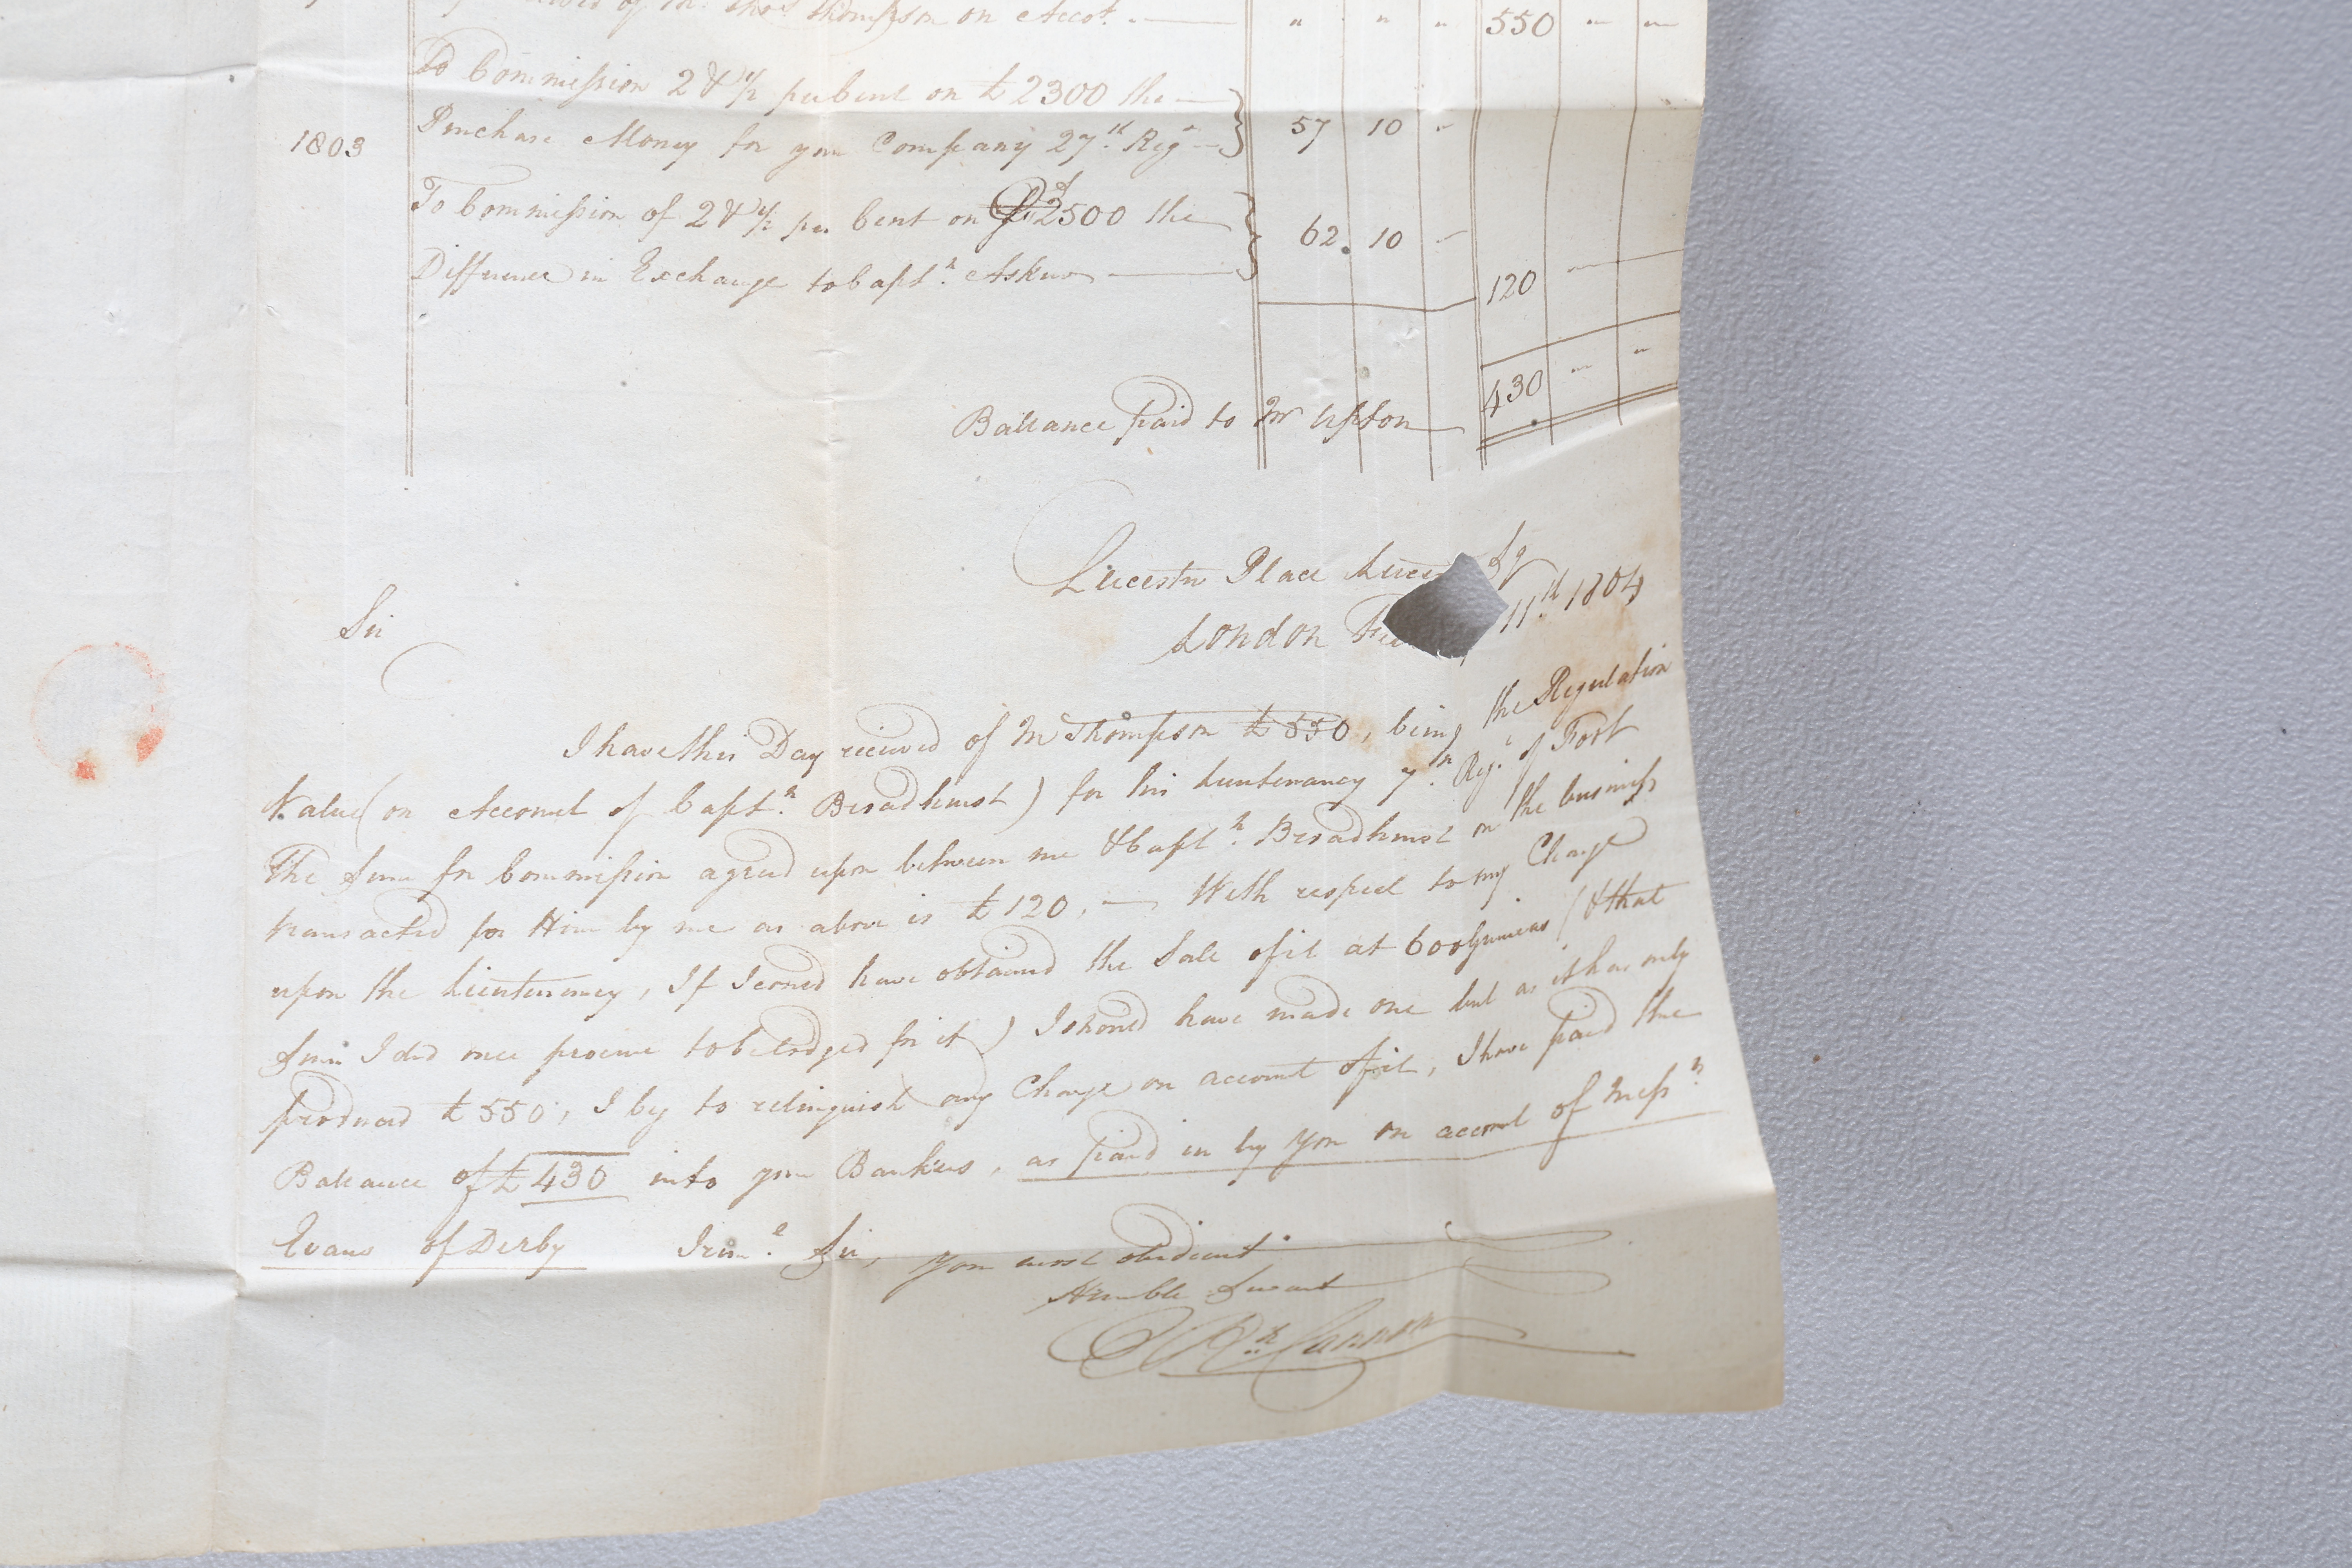 of Mr. Thos. Thompson on Accot. — " " " 550 " "
To Commission 2 & ½ per Cent on £2300 the —
1803 Purchase Money for your Company 27th Regt — 57 10 "
To Commission of 2 & ½ per Cent on £2500 the
62. 10 —
Difference in Exchange to Captn. Askew —
120 —
430 " "
Ballance paid to Mr Upton —
Leicester Place Leices Sq
London 11th 1804
Sir
I have this Day received of Mr Thompson £550, being the Regulation
Value (on Account of Captn. Broadhurst) for his Lieutenancy 7th. Regt. of Foot
The Sum for Commission agreed upon between me & Captn. Broadhurst on the business
transacted for Him by me as above is £120, — With respect to my Charge
upon the Lieutenancy, If I cou'd have obtained the Sale of it at 600 Guineas (& that
Sum I did once procure to be lodged for it) I shou'd have made one but as it has only
produced £550, I beg to relinquish any Charge on account of it, I have paid the
Ballance of £430 into your Bankers, as paid in by You on account of Messrs
Evans of Derby I remn. Sir, your most obedient
Humble Servant
Rd. Cannon